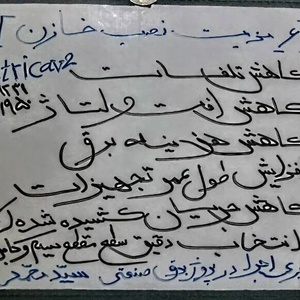 مزیت نصب خازن
tricav2
کاهش تلفات
کاهش افت ولتاژ
کاهش هزینه برق
افزایش طول عمر تجهیزات
کاهش جریان کشیده شده از
انتخاب دقیق سطح مقطع سیم و
اجرا در پروژه برق صنعتی سید محمد